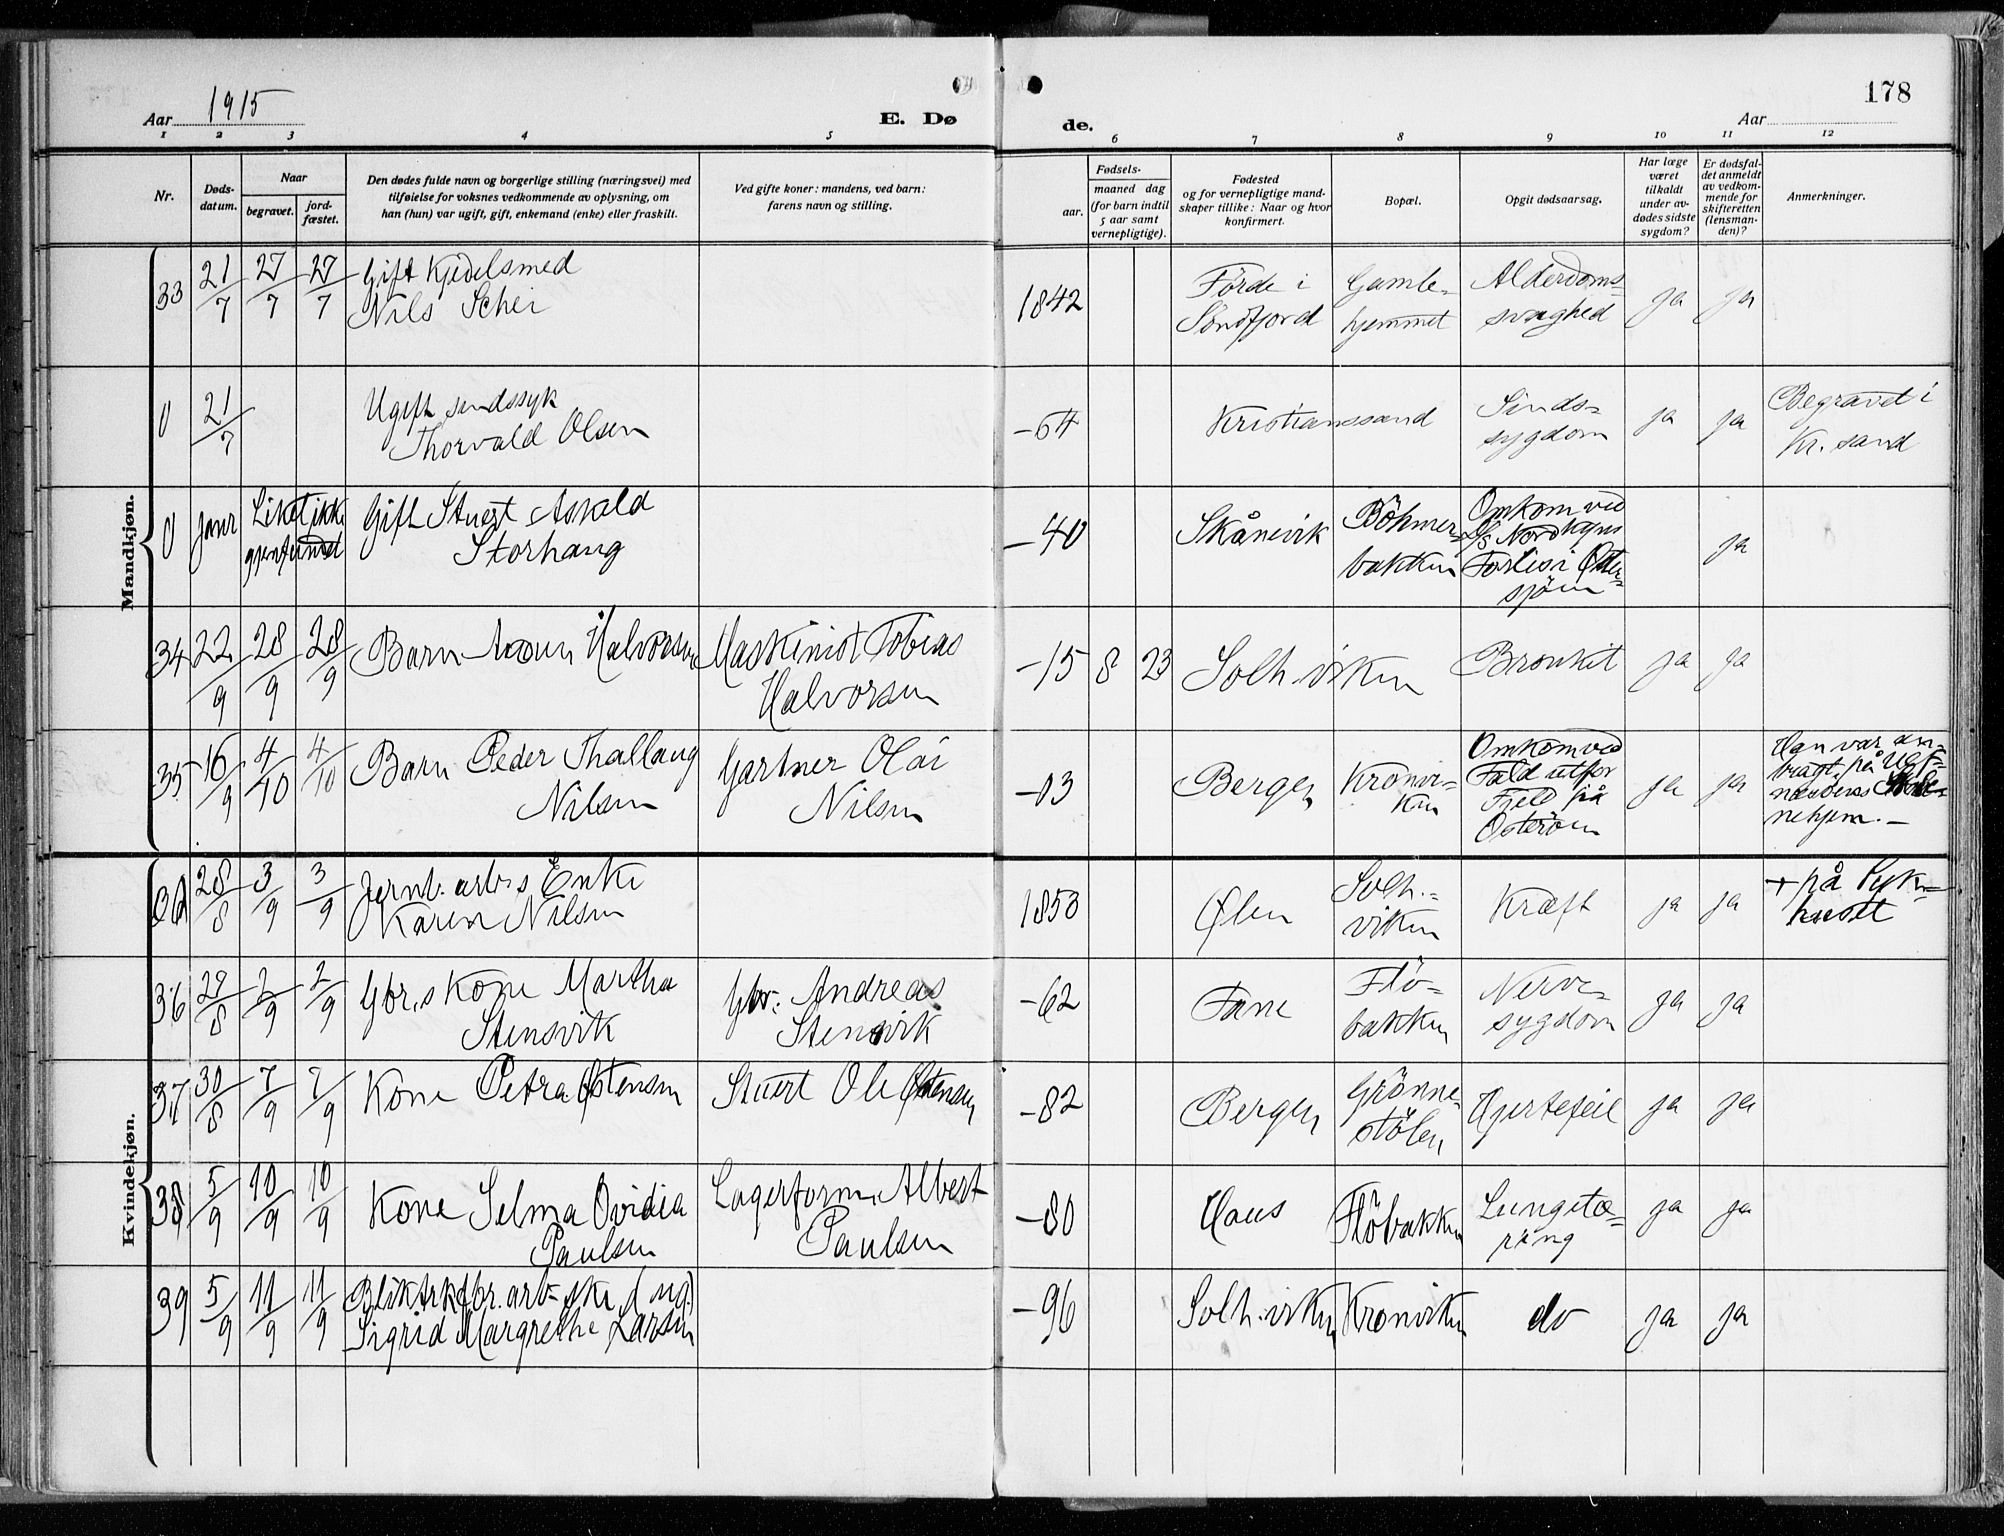 178
Aar 1915
E. Dø
de.
Aar
1 2 3 4 5 6 7 8 9 10 11 12
Nr.
Døds-
datum.
Naar
begravet.
jord-
fæstet.
Den dødes fulde navn og borgerlige stilling (næringsvei) med
tilføielse for voksnes vedkommende av oplysning, om
han (hun) var ugift, gift, enkemand (enke) eller fraskilt.
Ved gifte koner: mandens, ved barn:
farens navn og stilling.
Fødsels-
aar.
maaned dag
(for barn indtil
5 aar samt
vernepligtige).
Fødested
og for vernepligtige mand-
skaper tillike: Naar og hvor
konfirmert.
Bopæl.
Opgit dødsaarsag.
Har læge
været
tilkaldt
under av-
dødes sidste
sygdom?
Er dødsfal-
det anmeldt
av vedkom-
mende for
skifteretten
(lensman-
den)?
Anmerkninger.
Mandkjøn.
33 21/7 27/7 27/7 Gift Kjedelsmed
Nils Schei
1842
Førde i
Søndfjord
Gamle-
hjemmet
Alderdoms-
svaghed
ja ja
0 21/7
Ugift sindssyk
Thorvald Olsen
-64
Kristianssand
Sinds-
sygdom
ja ja
Begravet i
Kr. sand
0 Janr Liket ikke
Gift Stuert Askeld
Storhaug
-40
Skånevik
Böhmer-
bakken
Omkom ved
D/s Nordkyns
Forlis i Øster-
sjöen
ja
34 22/9 28/9 28/9 Barn Halvorsen
Maskinist Tobias
Halvorsen
-15 8 23
Solh.viken
Bronkit
ja ja
35 16/9 4/10 4/10 Barn Peder Thallaug
Nilsen
Gartner Olai
Nilsen
-03
Bergen
Kronvi-
ken
Omkom ved
Fald utfor
Fjeld på
Osterøen
ja ja
Han var an-
bragt på
nehjem. -
Kvindekjøn.
28/8 3/9 3/9 Jernb. arb.s Enke
Karen Nilsen
1853
Ølen
Solh.-
viken
Kræft
ja ja
+ på Syk-
huset
36 29/8 2/9 2/9 Gbr.s Kone Martha
Stensvik
Gbr. Andreas
Stensvik
-62
Fane
Flö-
bakken
Nerve-
sygdom
ja ja
37 30/8 7/9 7/9 Kone Petra Østensen
Stuert Ole Østensen
-82
Bergen
Grönne-
stölen
Hjertefeil
ja ja
38 5/9 10/9 10/9 Kone Selma Ovidia
Paulsen
Lagerform. Albert
Paulsen
-80
Haus
Flöbakken
Lungetæ-
ring
ja ja
39 5/9 11/9 11/9 arb-ske (ug.)
Sigrid Margrethe Larsen
-96
Solh.viken
Kronviken
do
ja ja